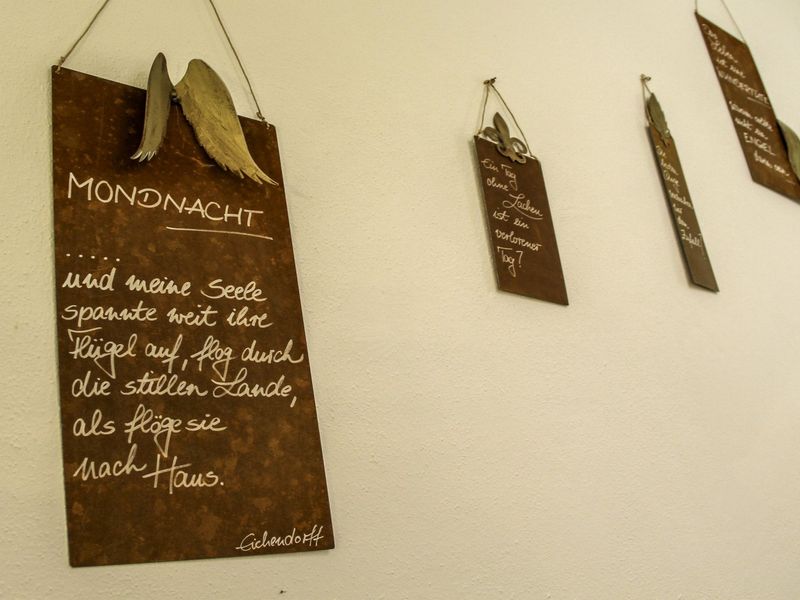 MONDNACHT
.....
und meine Seele
spannte weit ihre
Flügel auf, flog durch
die stillen Lande,
als flöge sie
nach Haus.
Eichendorff
Ein Tag
ohne Lachen
ist ein
verlorener
Tag!
der
Zufall!
Das
Leben
ist eine
WUNDERTÜTE
ENGEL